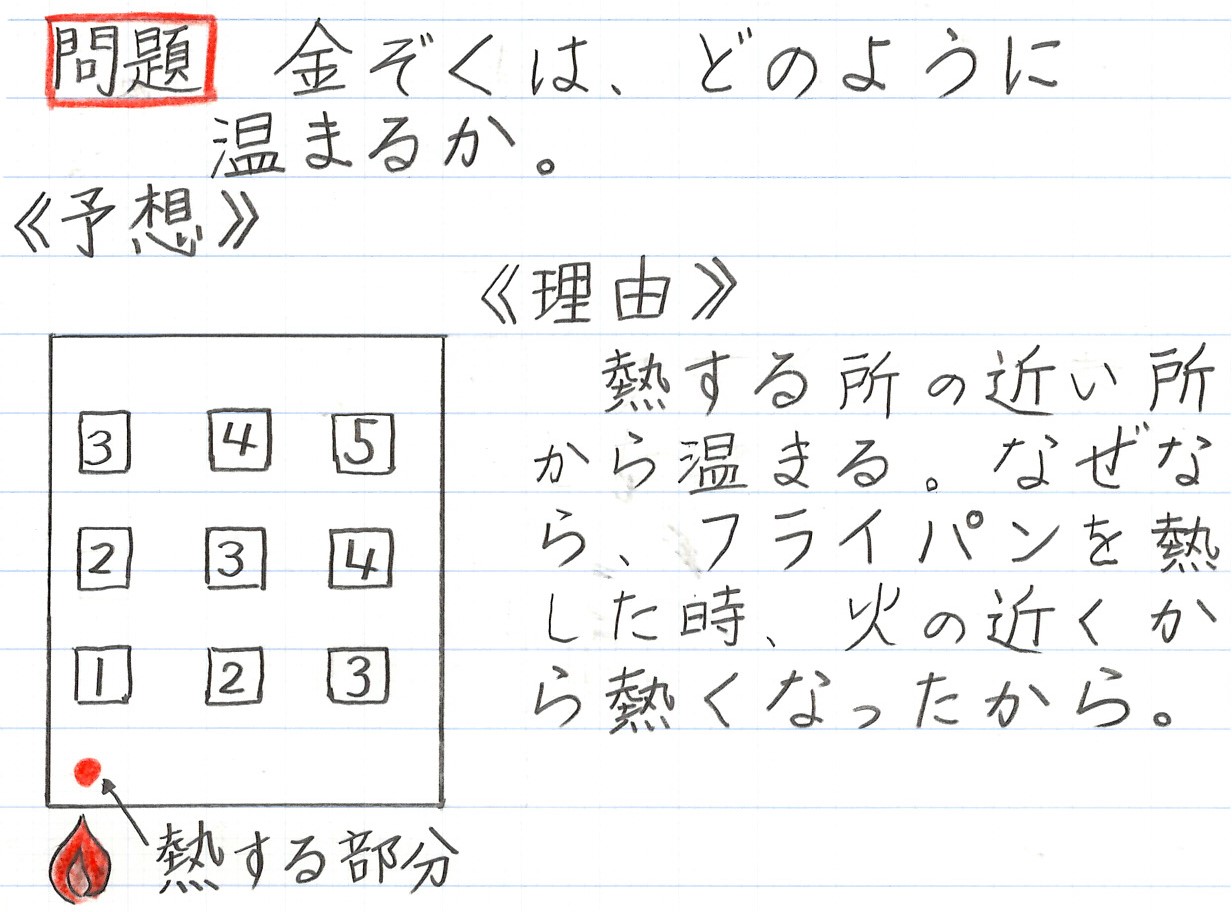 問題 金ぞくは、どのように
温まるか。
《予想》
《理由》
3 4 5
2 3 4
1 2 3
熱する部分
熱する所の近い所
から温まる。なぜな
ら、フライパンを熱
した時、火の近くか
ら熱くなったから。